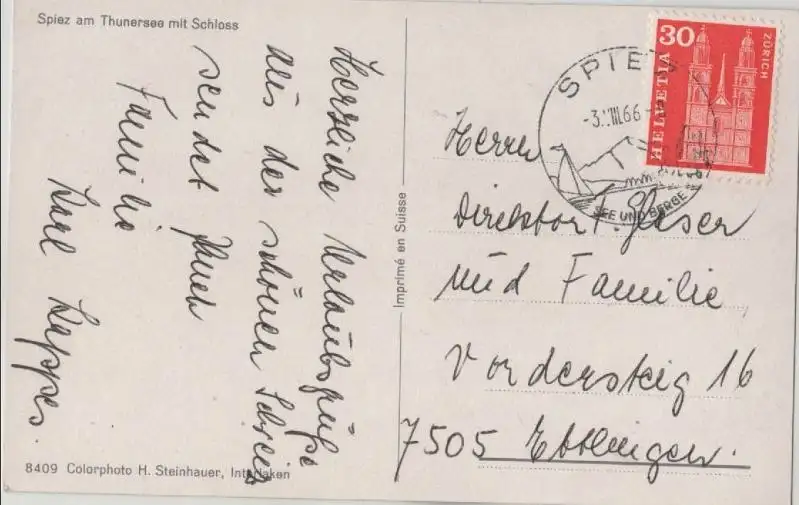 Spiez am Thunersee mit Schloss
Herzliche Urlaubsgrüße
aus der schönen Schweiz
sendet Ihnen
Familie
Karl Kappes.
8409 Colorphoto H. Steinhauer, Interlaken
Imprimé en Suisse
SPIEZ
-3.VIII.66-
SEE UND BERGE
30
HELVETIA
ZÜRICH
Herrn
Direktor F. Glaser
und Familie
Vordersteig 16
7505 Ettlingen.